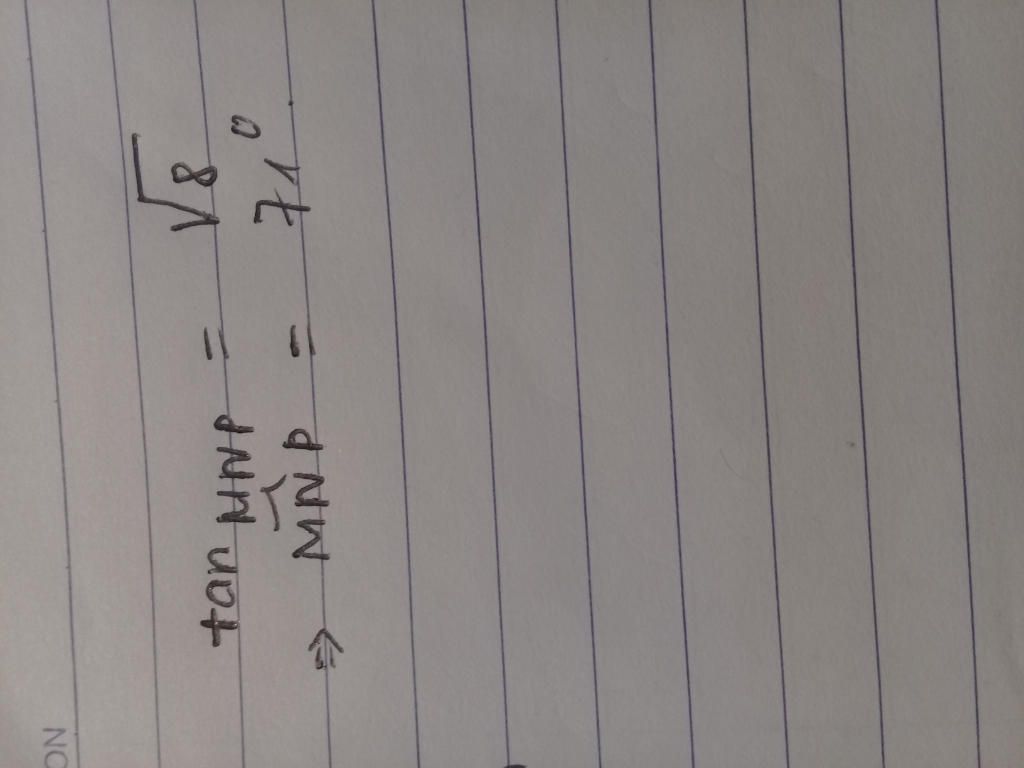 NO
tan MNP = √8
⇒ M̂NP = 71°